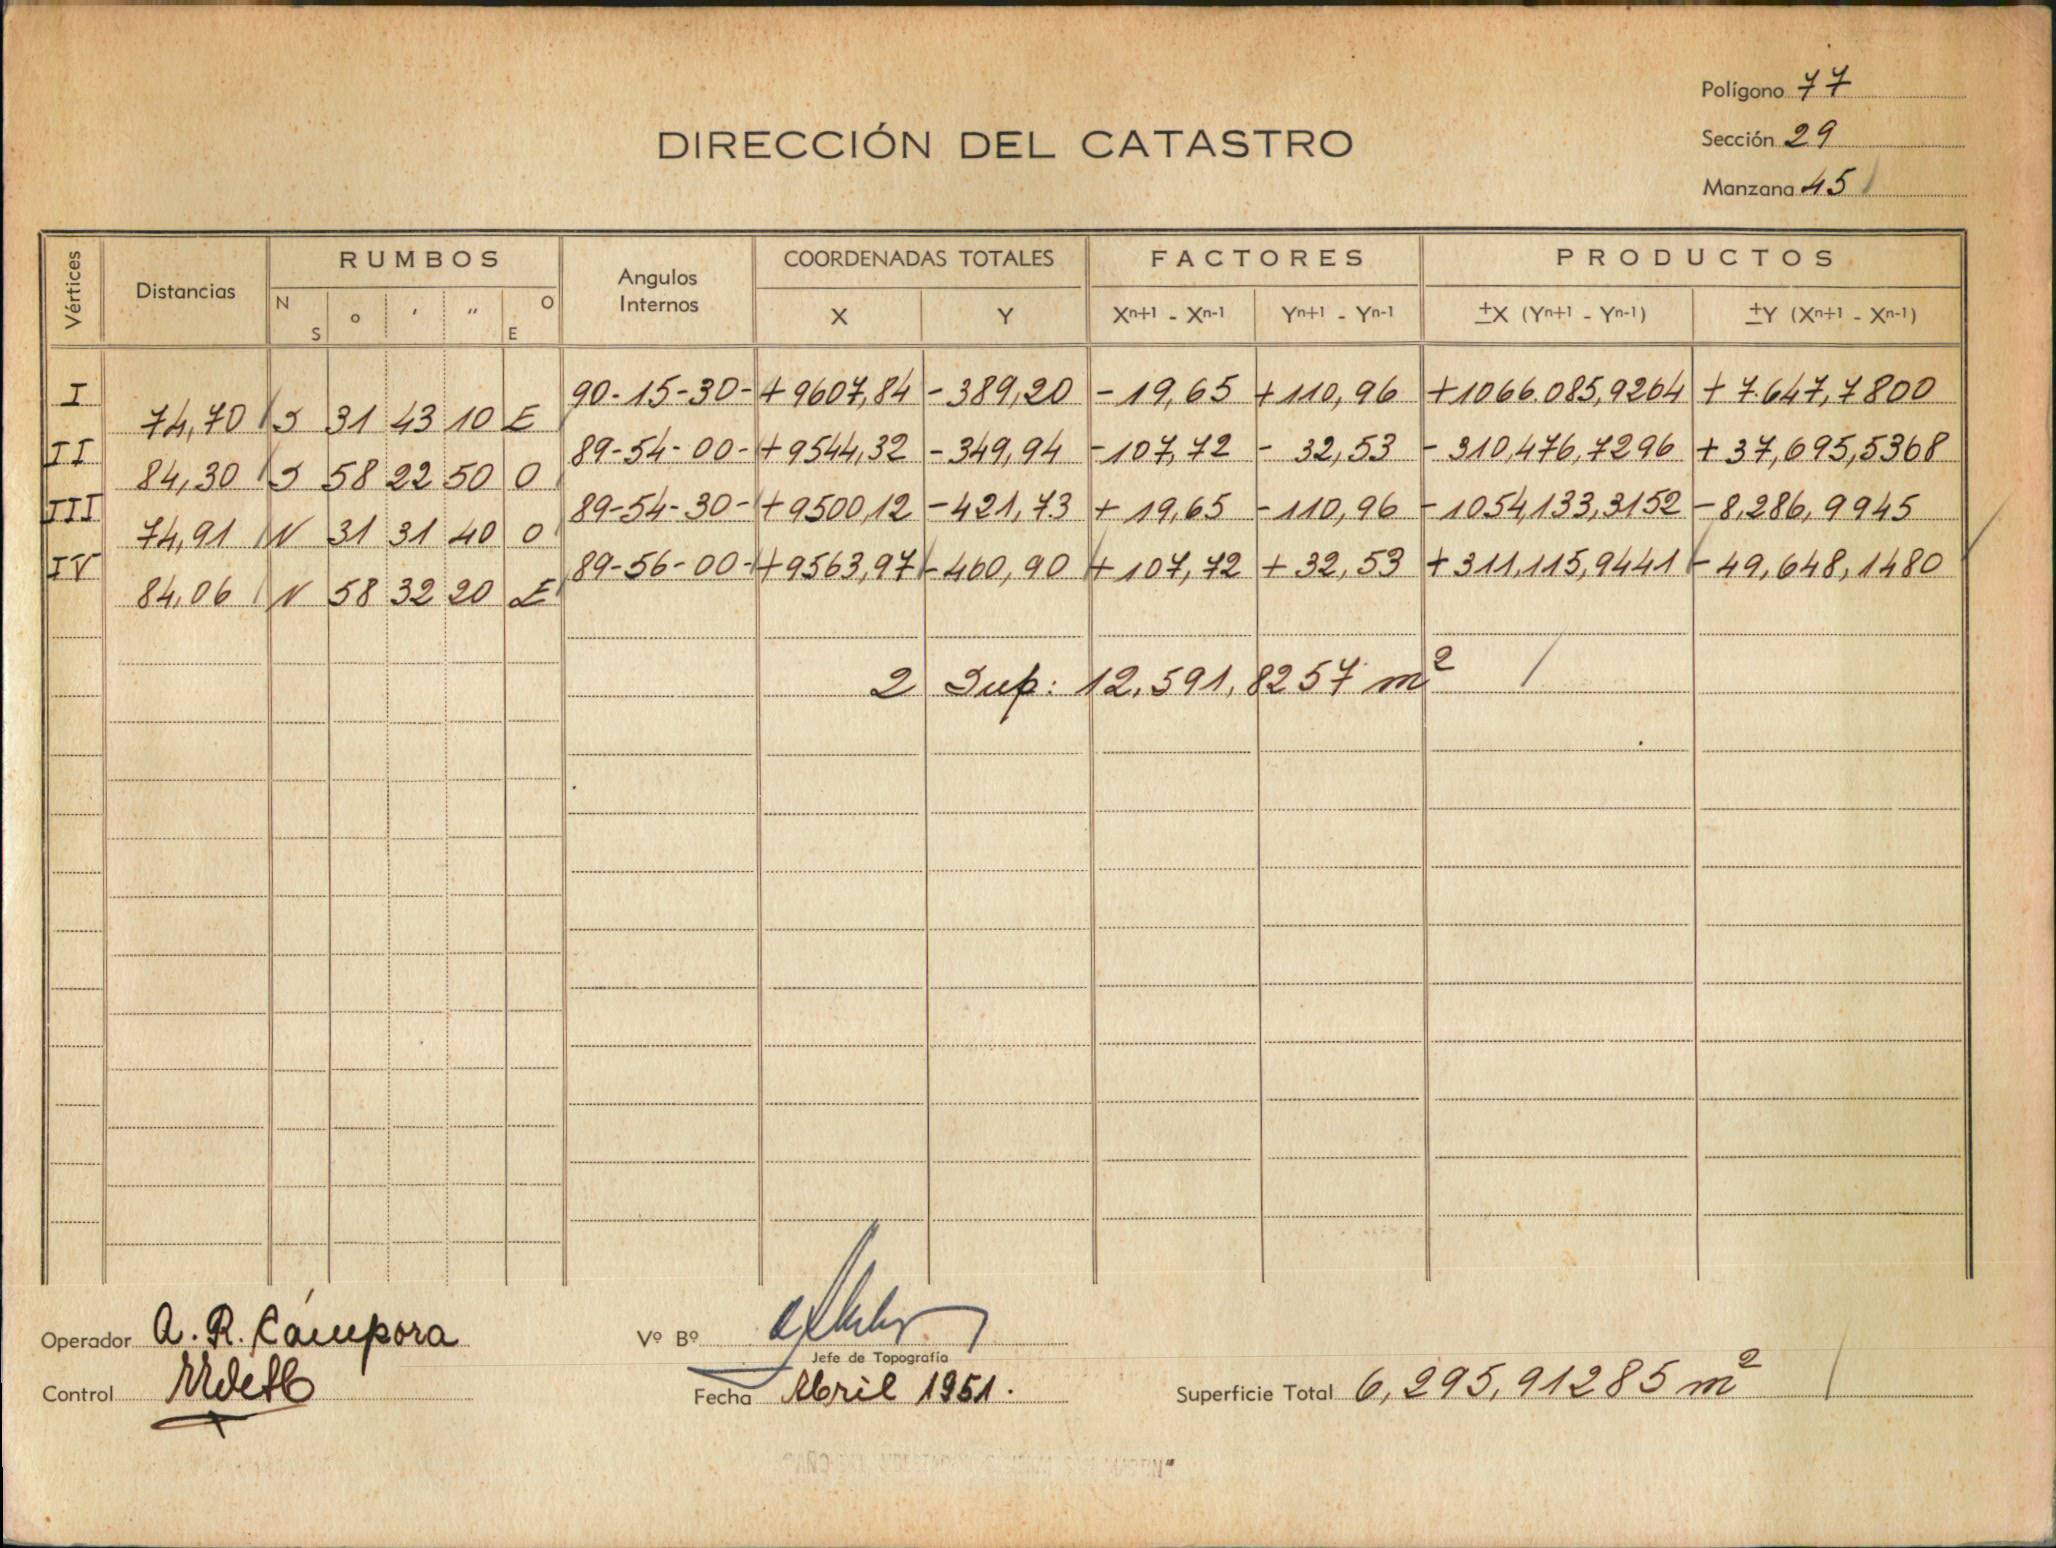 Polígono 77
DIRECCIÓN DEL CATASTRO
Sección 29
Manzana 45
Vértices Distancias RUMBOS Angulos Internos COORDENADAS TOTALES FACTORES PRODUCTOS
N S ° ' " O E X Y Xn+1 - Xn-1 Yn+1 - Yn-1 ±X (Yn+1 - Yn-1) ±Y (Xn+1 - Xn-1)
I 90-15-30- +9607,84 -389,20 -19,65 +110,96 +1066.085,9264 +7.647,7800
74,70 S 31 43 10 E
II 89-54-00- +9544,32 -349,94 -107,72 - 32,53 -310,476,7296 +37,695,5368
84,30 S 58 22 50 O
III 89-54-30- +9500,12 -421,73 +19,65 -110,96 -1054,133,3152 -8,286,9945
74,91 N 31 31 40 O
IV 89-56-00- +9563,97 -460,90 +107,72 +32,53 +311,115,9441 -49,648,1480
84,06 N 58 32 20 E
2 Sup: 12,591,8257 m²
Operador A. R. Cámpora
Vº Bº
Jefe de Topografía
Control
Fecha Abril 1951.
Superficie Total 6,295,91285 m²